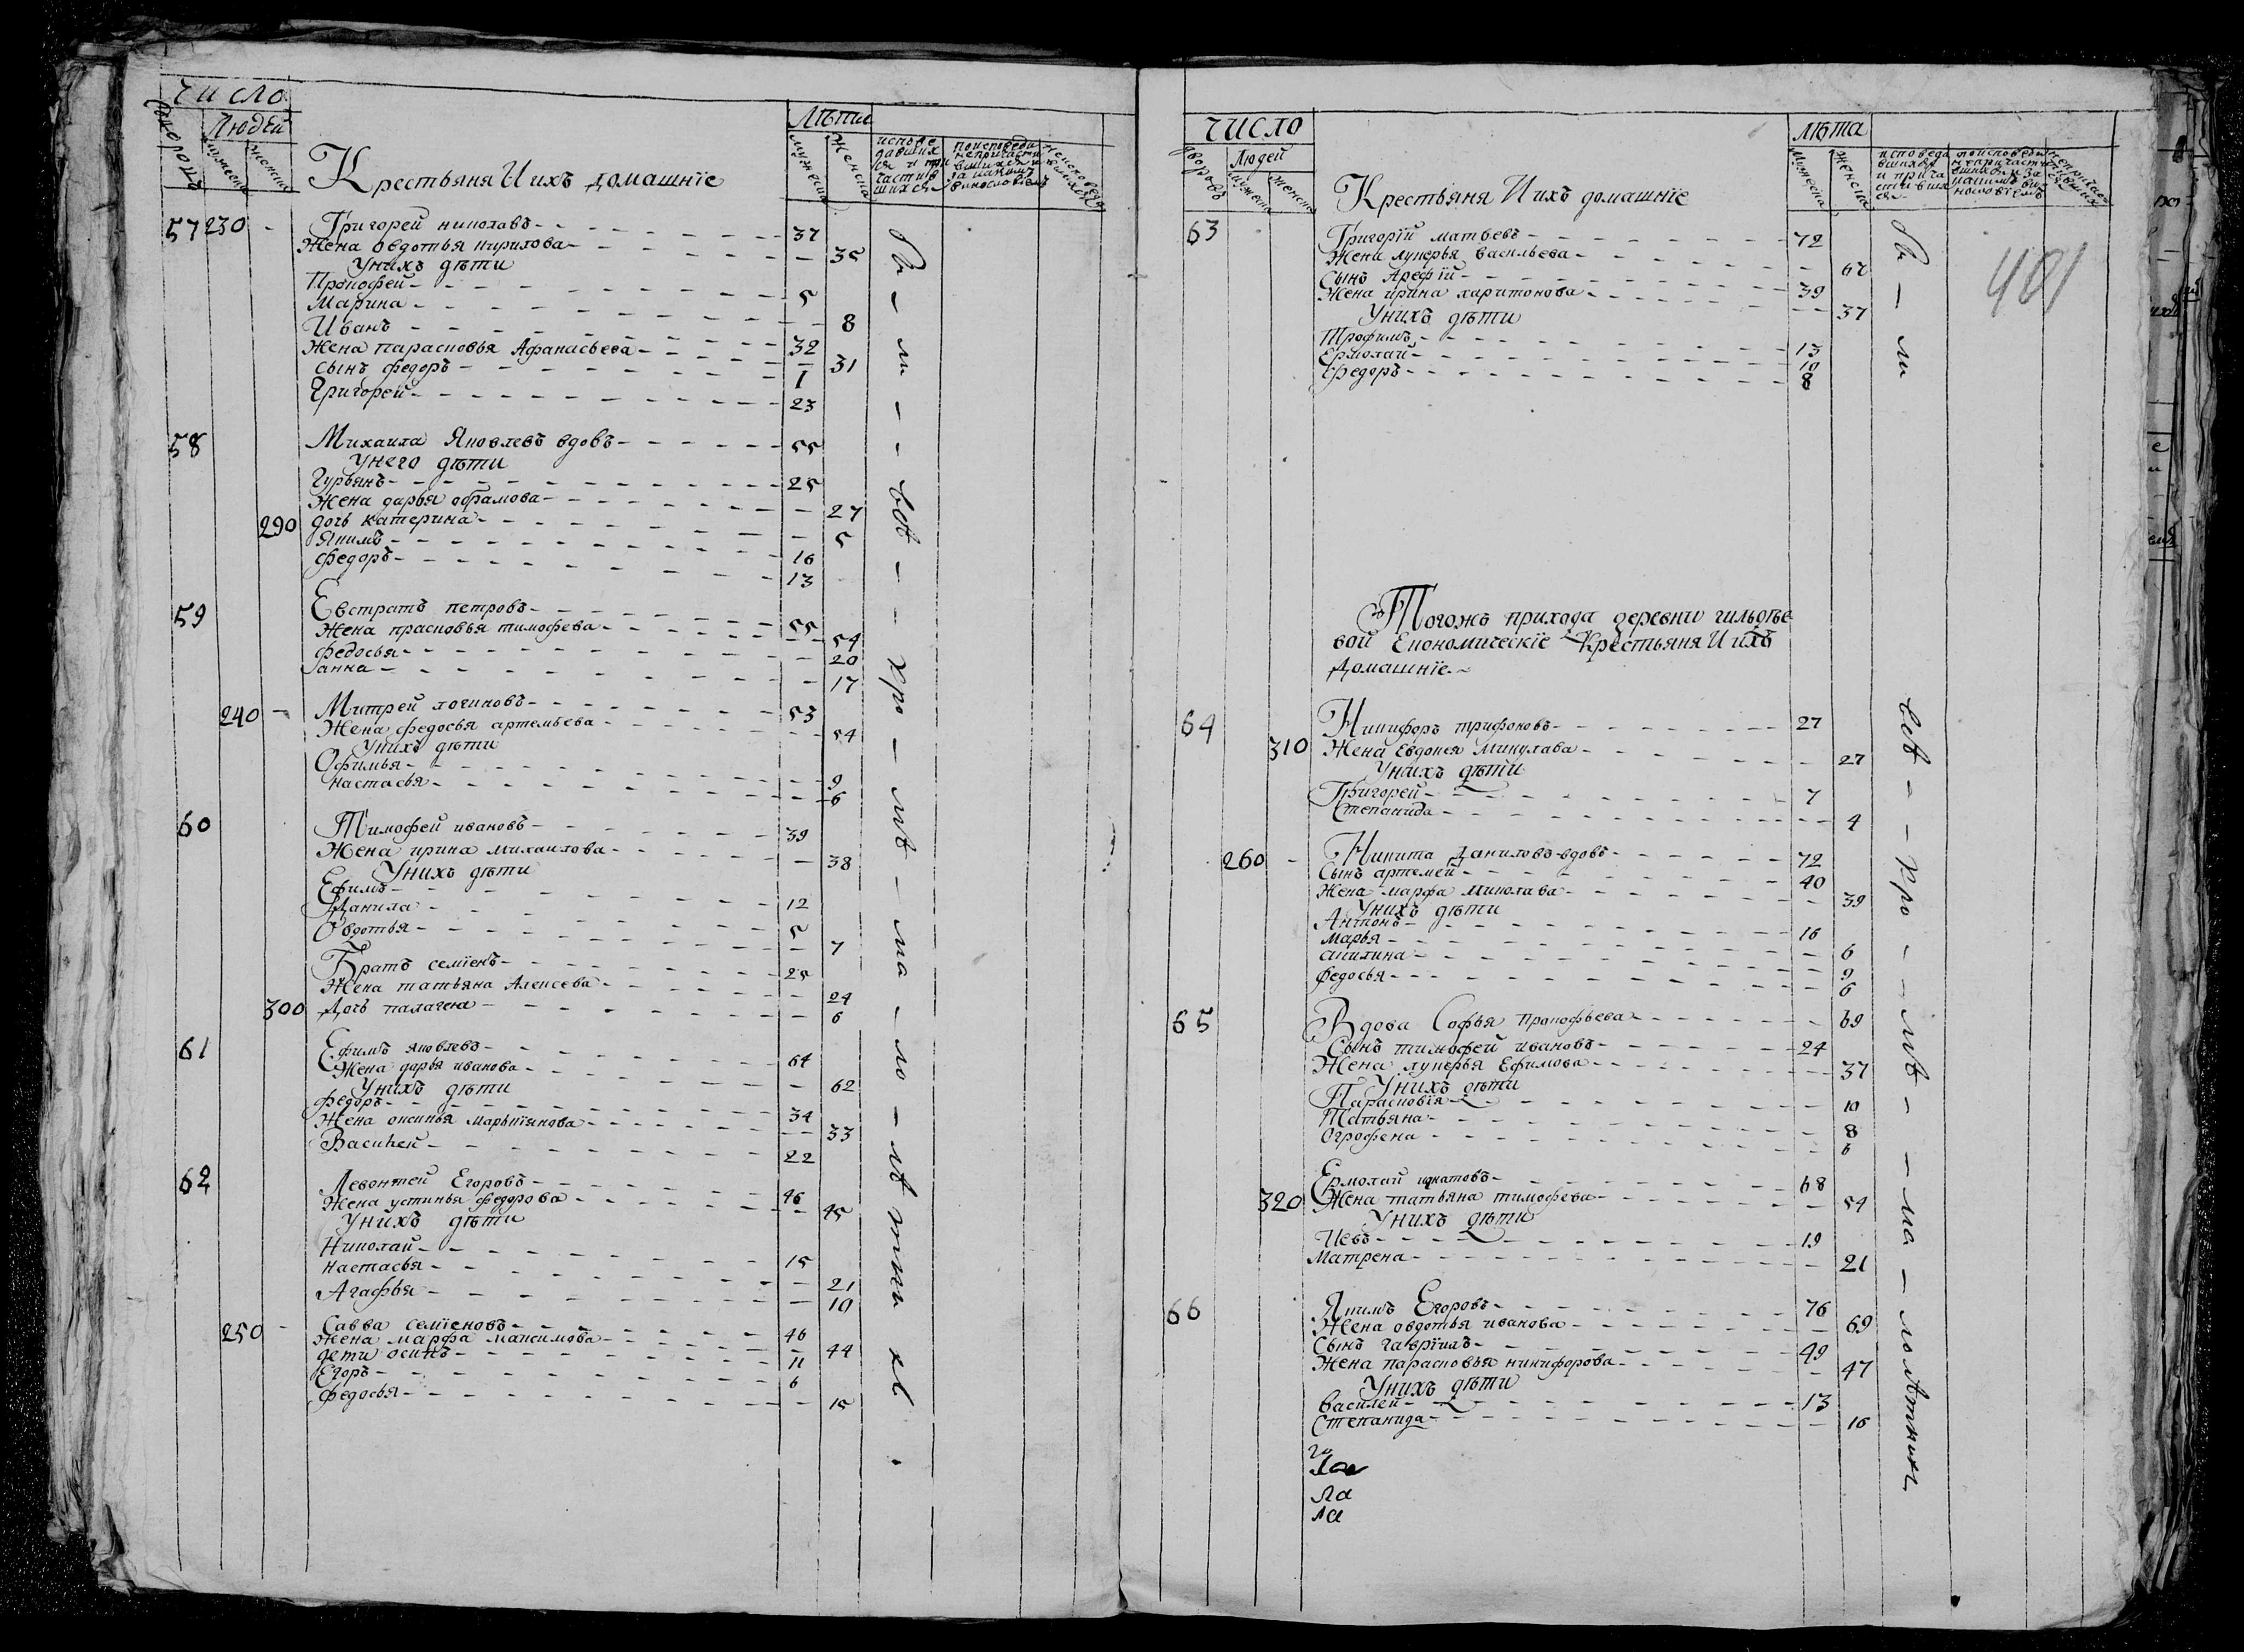 число
людей
лѣта
дворовъ
мужеска
женска
мужеска
женска
Крестьяня И ихъ домашніе
57 230 - Григорей николавъ - 37
Жена овдотья кирилова - 35
Унихъ дѣти
Прокофей - 5
Марина - 8
Иванъ - 32
Жена парасковья Афанасьева - 31
сынъ федоръ - 1
Григорей - 23
58 Михаила Яковлевъ вдовъ - 55
Унего дѣти
Гурьянъ - 25
Жена дарья офрамова - 27
290 дочь катерина - 5
Якимъ - 16
федоръ - 13
59 Евстратъ петровъ - 55
Жена прасковья тимофева - 54
федосья - 20
анна - 17
240 - Митрей логиновъ - 53
Жена федосья артемьева - 54
Унихъ дѣти
Офимья - 9
настасья - 6
60 Тимофей ивановъ - 39
Жена ирина михаилова - 38
Унихъ дѣти
Ефимъ - 12
Данила - 5
Овдотья - 7
Братъ семіенъ - 25
Жена татьяна Алексева - 24
300 Дочь палагея - 6
61 Ефимъ яковлевъ - 64
Жена дарья иванова - 62
Унихъ дѣти
федоръ - 34
Жена оксинья Маркіянова - 33
Василей - 22
62 Левонтей Егоровъ - 46
Жена устинья федорова - 45
Унихъ дѣти
Николай - 15
настасья - 21
Агафья - 10
250 - Савва семіеновъ - 46
Жена марфа максимова - 44
дети осипъ - 11
Егоръ - 6
федосья - 15
число
людей
лѣта
дворовъ
мужеска
женска
мужеска
женска
Крестьяня И ихъ домашніе
481
63 Григорій матвевъ - 72
Жена лукерья васильева - 67
Сынъ Арефій - 39
Жена ирина харитонова - 37
Унихъ дѣти
Трофимъ - 13
Ермолай - 10
Федоръ - 8
Тогожъ прихода деревни гильдѣе
вой Економическіе Крестьяня И ихъ
Домашніе
64 Никифоръ трифоновъ - 27
310 Жена Евдокея Микулава - 27
Унихъ дѣти
Григорей - 7
Степанида - 4
260 - Никита даниловъ вдовъ - 72
Сынъ артемей - 40
Жена марфа миколава - 39
Унихъ дѣти
Антонъ - 16
Марья - 6
акилина - 9
федосья - 6
65 Вдова Софья прокофьева - 69
Сынъ тимофей ивановъ - 24
Жена лукерья Ефимова - 37
Унихъ дѣти
Парасковія - 10
Татьяна - 8
Огрофена - 6
Ермолай игнатовъ - 68
320 Жена татьяна тимофева - 54
Унихъ дѣти
Иевъ - 19
Матрена - 21
66 Якимъ Егоровъ - 76
Жена овдотья иванова - 69
Сынъ гаврілъ - 49
Жена парасковья никифорова - 47
Унихъ дѣти
василей - 13
Степанида - 16
ла
ла